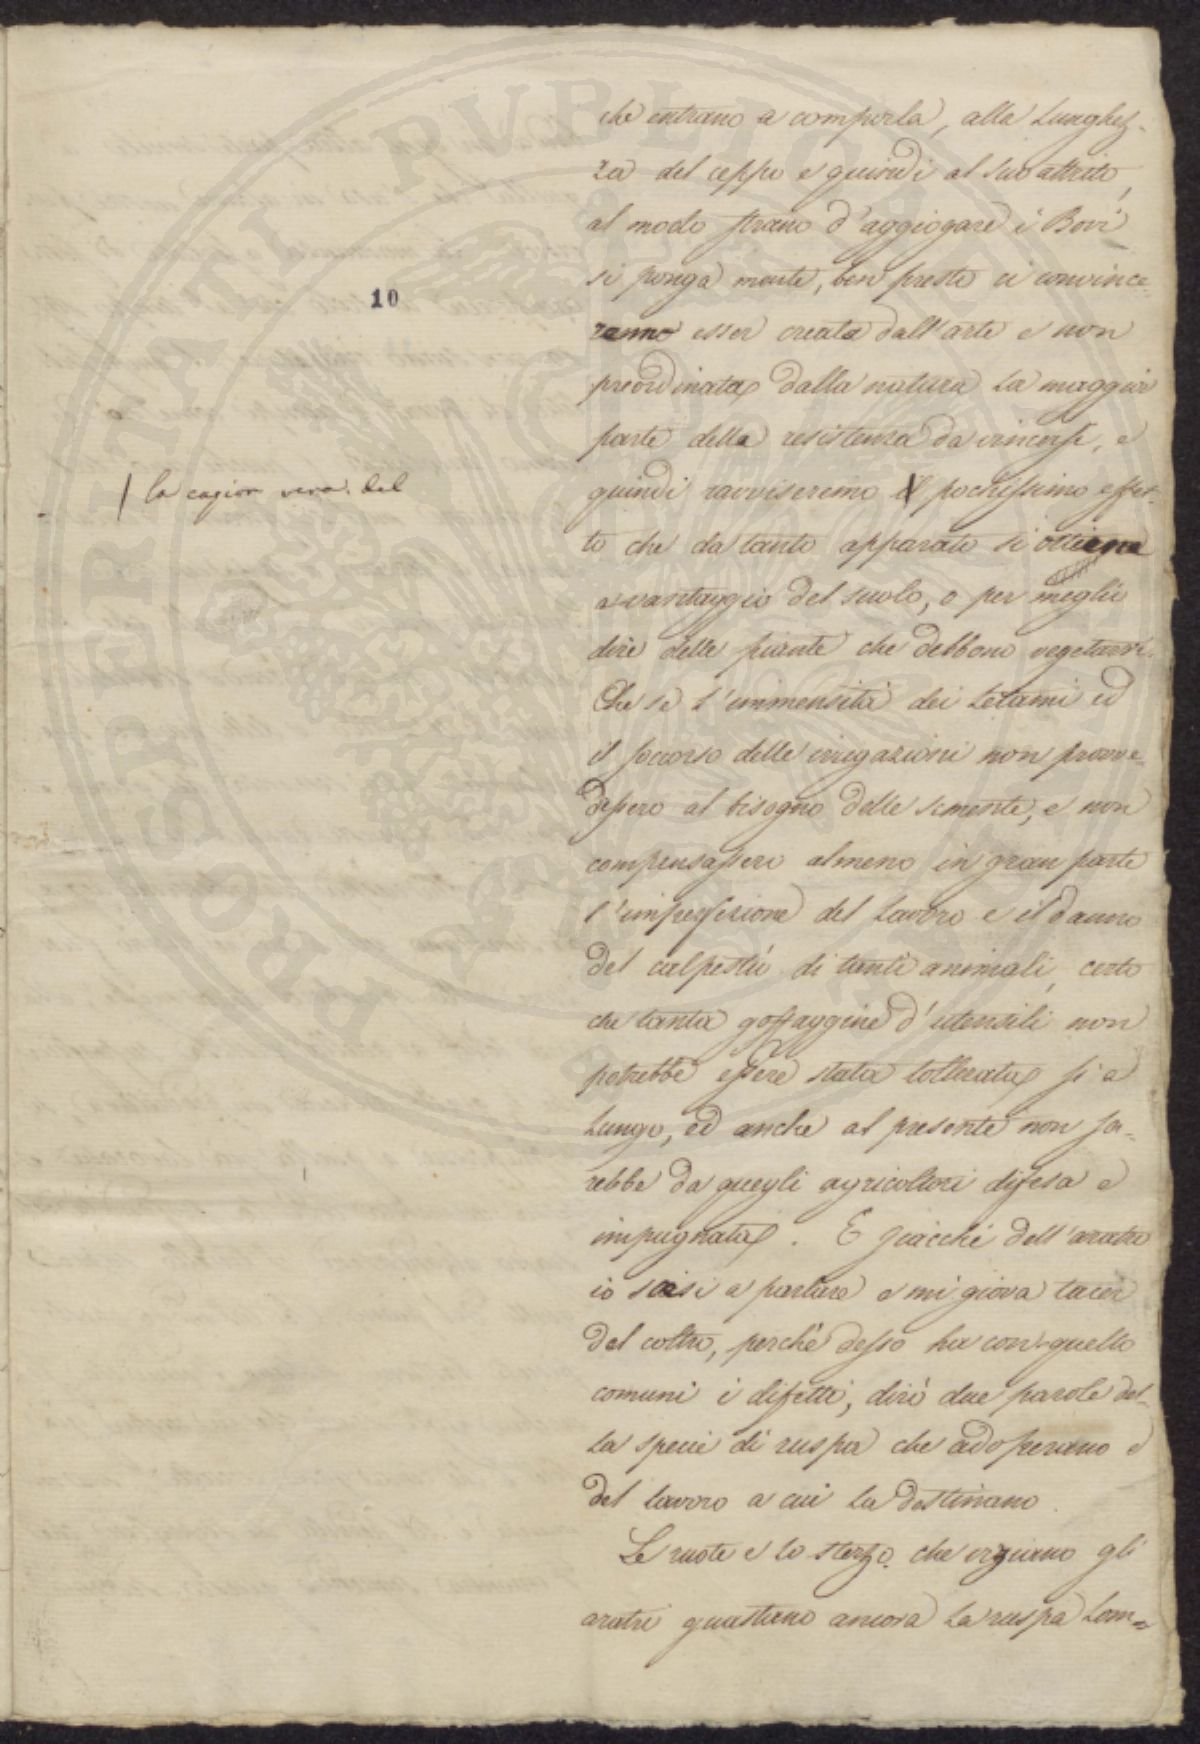 che entrano a comporla, alla lunghez-
za del ceppo e quindi al suo attrito,
al modo strano d'aggiogare i Bovi
si ponga mente, ben presto ci convince-
ranno esser creata dall'arte e non
preordinata dalla natura la maggior
parte della resistenza da vincersi, e
quindi ravviseremo il pochissimo effet-
to che da tanto apparato si ottiene
a vantaggio del suolo, o per meglio
dire delle piante che debbono vegetarvi.
Che se l'immensità dei letami ed
il soccorso delle irrigazioni non provve-
dessero al bisogno delle semente, e non
compensassero almeno in gran parte
l'imperfezione del lavoro e il danno
del calpestìo di tanti animali, certo
che tanta goffaggine d'utensili non
potrebbe essere stata tollerata sì a
lungo, ed anche al presente non sa-
rebbe da quegli agricoltori difesa e
impugnata. E giacchè dell'aratro
io scesi a parlare e mi giova tacer
del coltro, perchè desso ha con quello
comuni i difetti, dirò due parole del-
la specie di ruspa che adoperano e
del lavoro a cui la destinano.
Le ruote e lo sterzo che
gli
aratri guastano ancora la ruspa Lom=
10
/ la cagion vera del
PROSPERITATI PVBLICAE